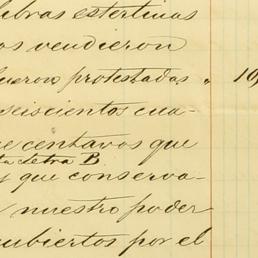 libras esterlinas
os vendieron
fueron protestadas " 10,
seiscientos cua-
e centavos que
ta Letra B.
y que conserva-
nuestro poder
cubiertos por el